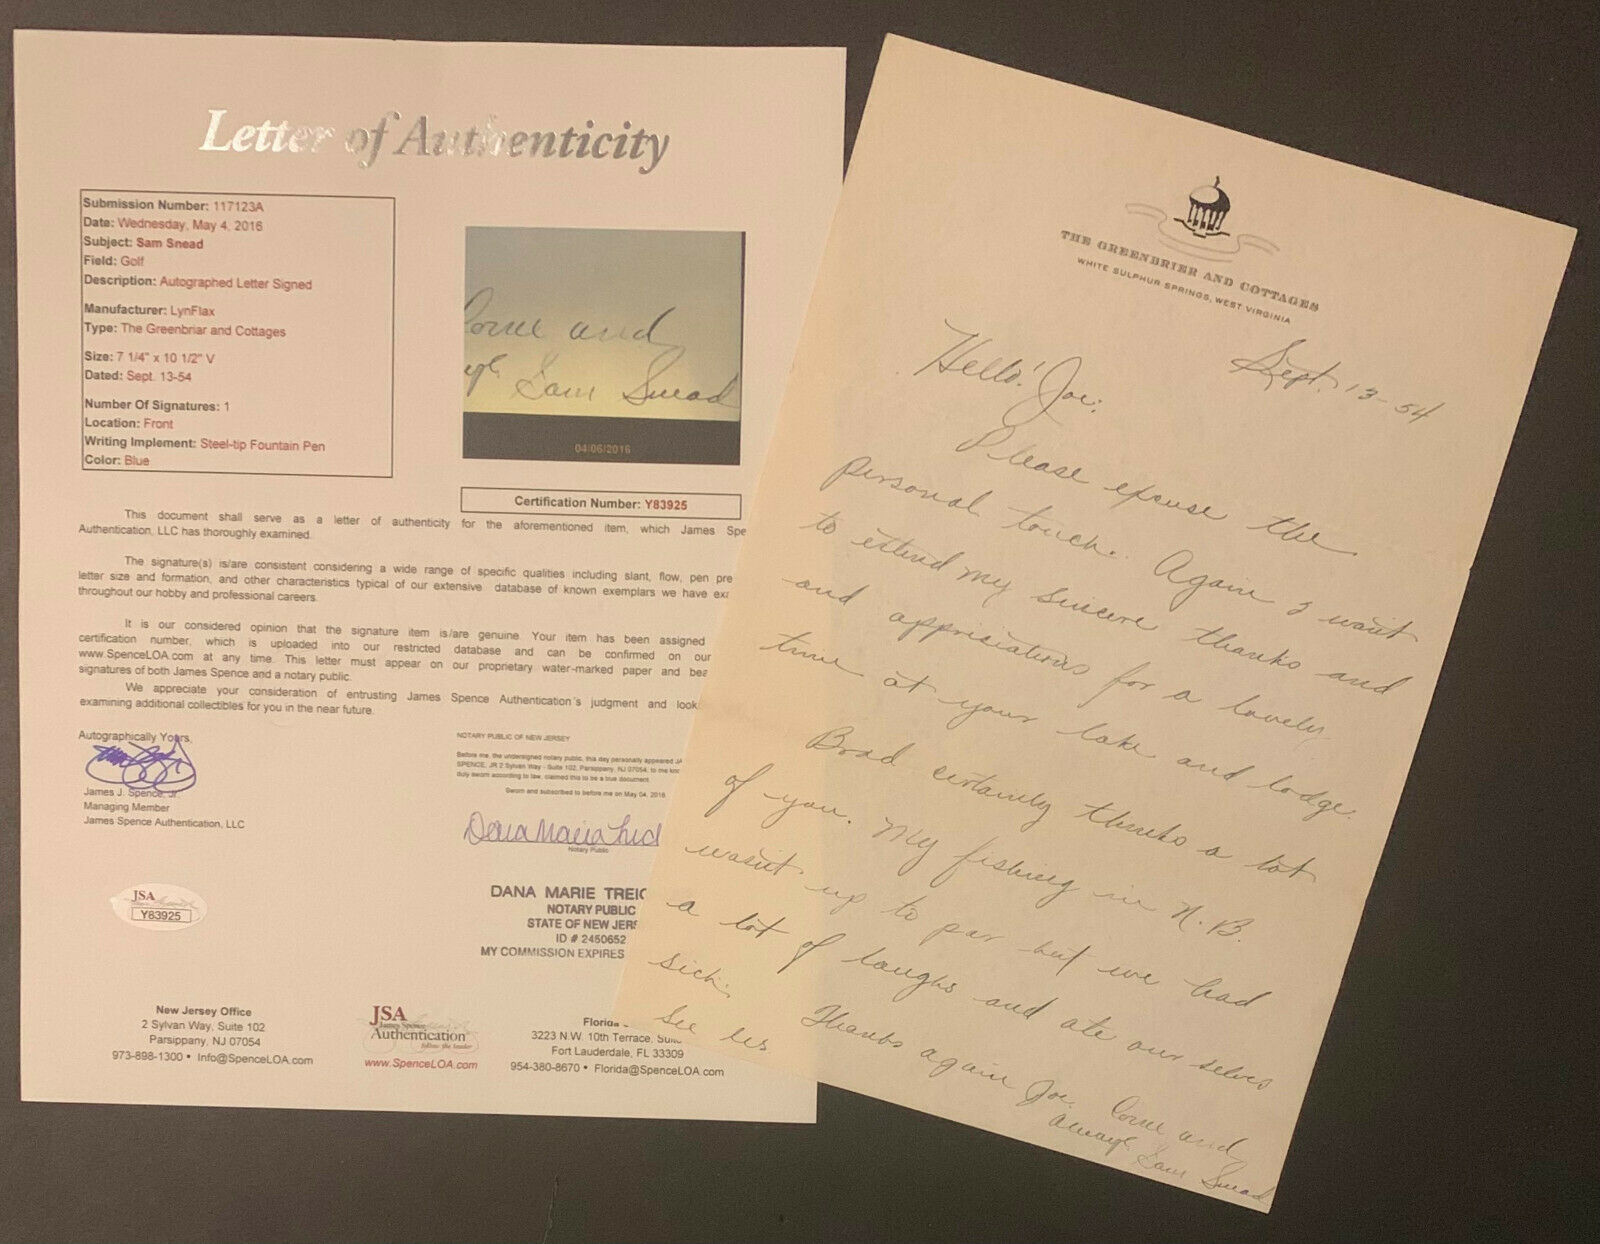 Letter of Authenticity
Submission Number: 117123A
Date: Wednesday, May 4, 2016
Subject: Sam Snead
Field: Golf
Description: Autographed Letter Signed
Manufacturer: LynFlax
Type: The Greenbriar and Cottages
Size: 7 1/4" x 10 1/2" V
Dated: Sept. 13-54
Number Of Signatures: 1
Location: Front
Writing Implement: Steel-tip Fountain Pen
Color: Blue
Come and
Sam Snead
04/06/2016
Certification Number: Y83925
This document shall serve as a letter of authenticity for the aforementioned item, which James Spe
Authentication, LLC has thoroughly examined.
The signature(s) is/are consistent considering a wide range of specific qualities including slant, flow, pen pre
letter size and formation, and other characteristics typical of our extensive database of known exemplars we have exa
throughout our hobby and professional careers.
It is our considered opinion that the signature item is/are genuine. Your item has been assigned
certification number, which is uploaded into our restricted database and can be confirmed on our
www.SpenceLOA.com at any time. This letter must appear on our proprietary water-marked paper and bea
signatures of both James Spence and a notary public.
We appreciate your consideration of entrusting James Spence Authentication's judgment and look
examining additional collectibles for you in the near future.
Autographically Yours,
James J. Spence, Jr.
Managing Member
James Spence Authentication, LLC
NOTARY PUBLIC OF NEW JERSEY
Before me, the undersigned notary public, this day personally appeared JA
SPENCE, JR 2 Sylvan Way - Suite 102, Parsippany, NJ 07054, to me kno
duly sworn according to law, claimed this to be a true document.
Sworn and subscribed to before me on May 04, 2016
Dana Maria
Notary Public
DANA MARIE TREIC
NOTARY PUBLIC
STATE OF NEW JERS
ID # 2450652
MY COMMISSION EXPIRES
JSA
Y83925
New Jersey Office
2 Sylvan Way, Suite 102
Parsippany, NJ 07054
973-898-1300 • Info@SpenceLOA.com
JSA
James Spence
Authentication
follow the leader
www.SpenceLOA.com
Florida
3223 N.W. 10th Terrace, Suite
Fort Lauderdale, FL 33309
954-380-8670 • Florida@SpenceLOA.com
THE GREENBRIER AND COTTAGES
WHITE SULPHUR SPRINGS, WEST VIRGINIA
Sept. 13-54
Hello! Joe:
Please excuse the
personal touch. Again I want
to extend my sincere thanks and
and appriciations for a lovely
time at your lake and lodge.
Brad certainly thinks a lot
of you. My fishing in N.B.
wasn't up to par but we had
a lot of laughs and ate our selves
sick. Thanks again Joe. Come and
see us always. Sam Snead